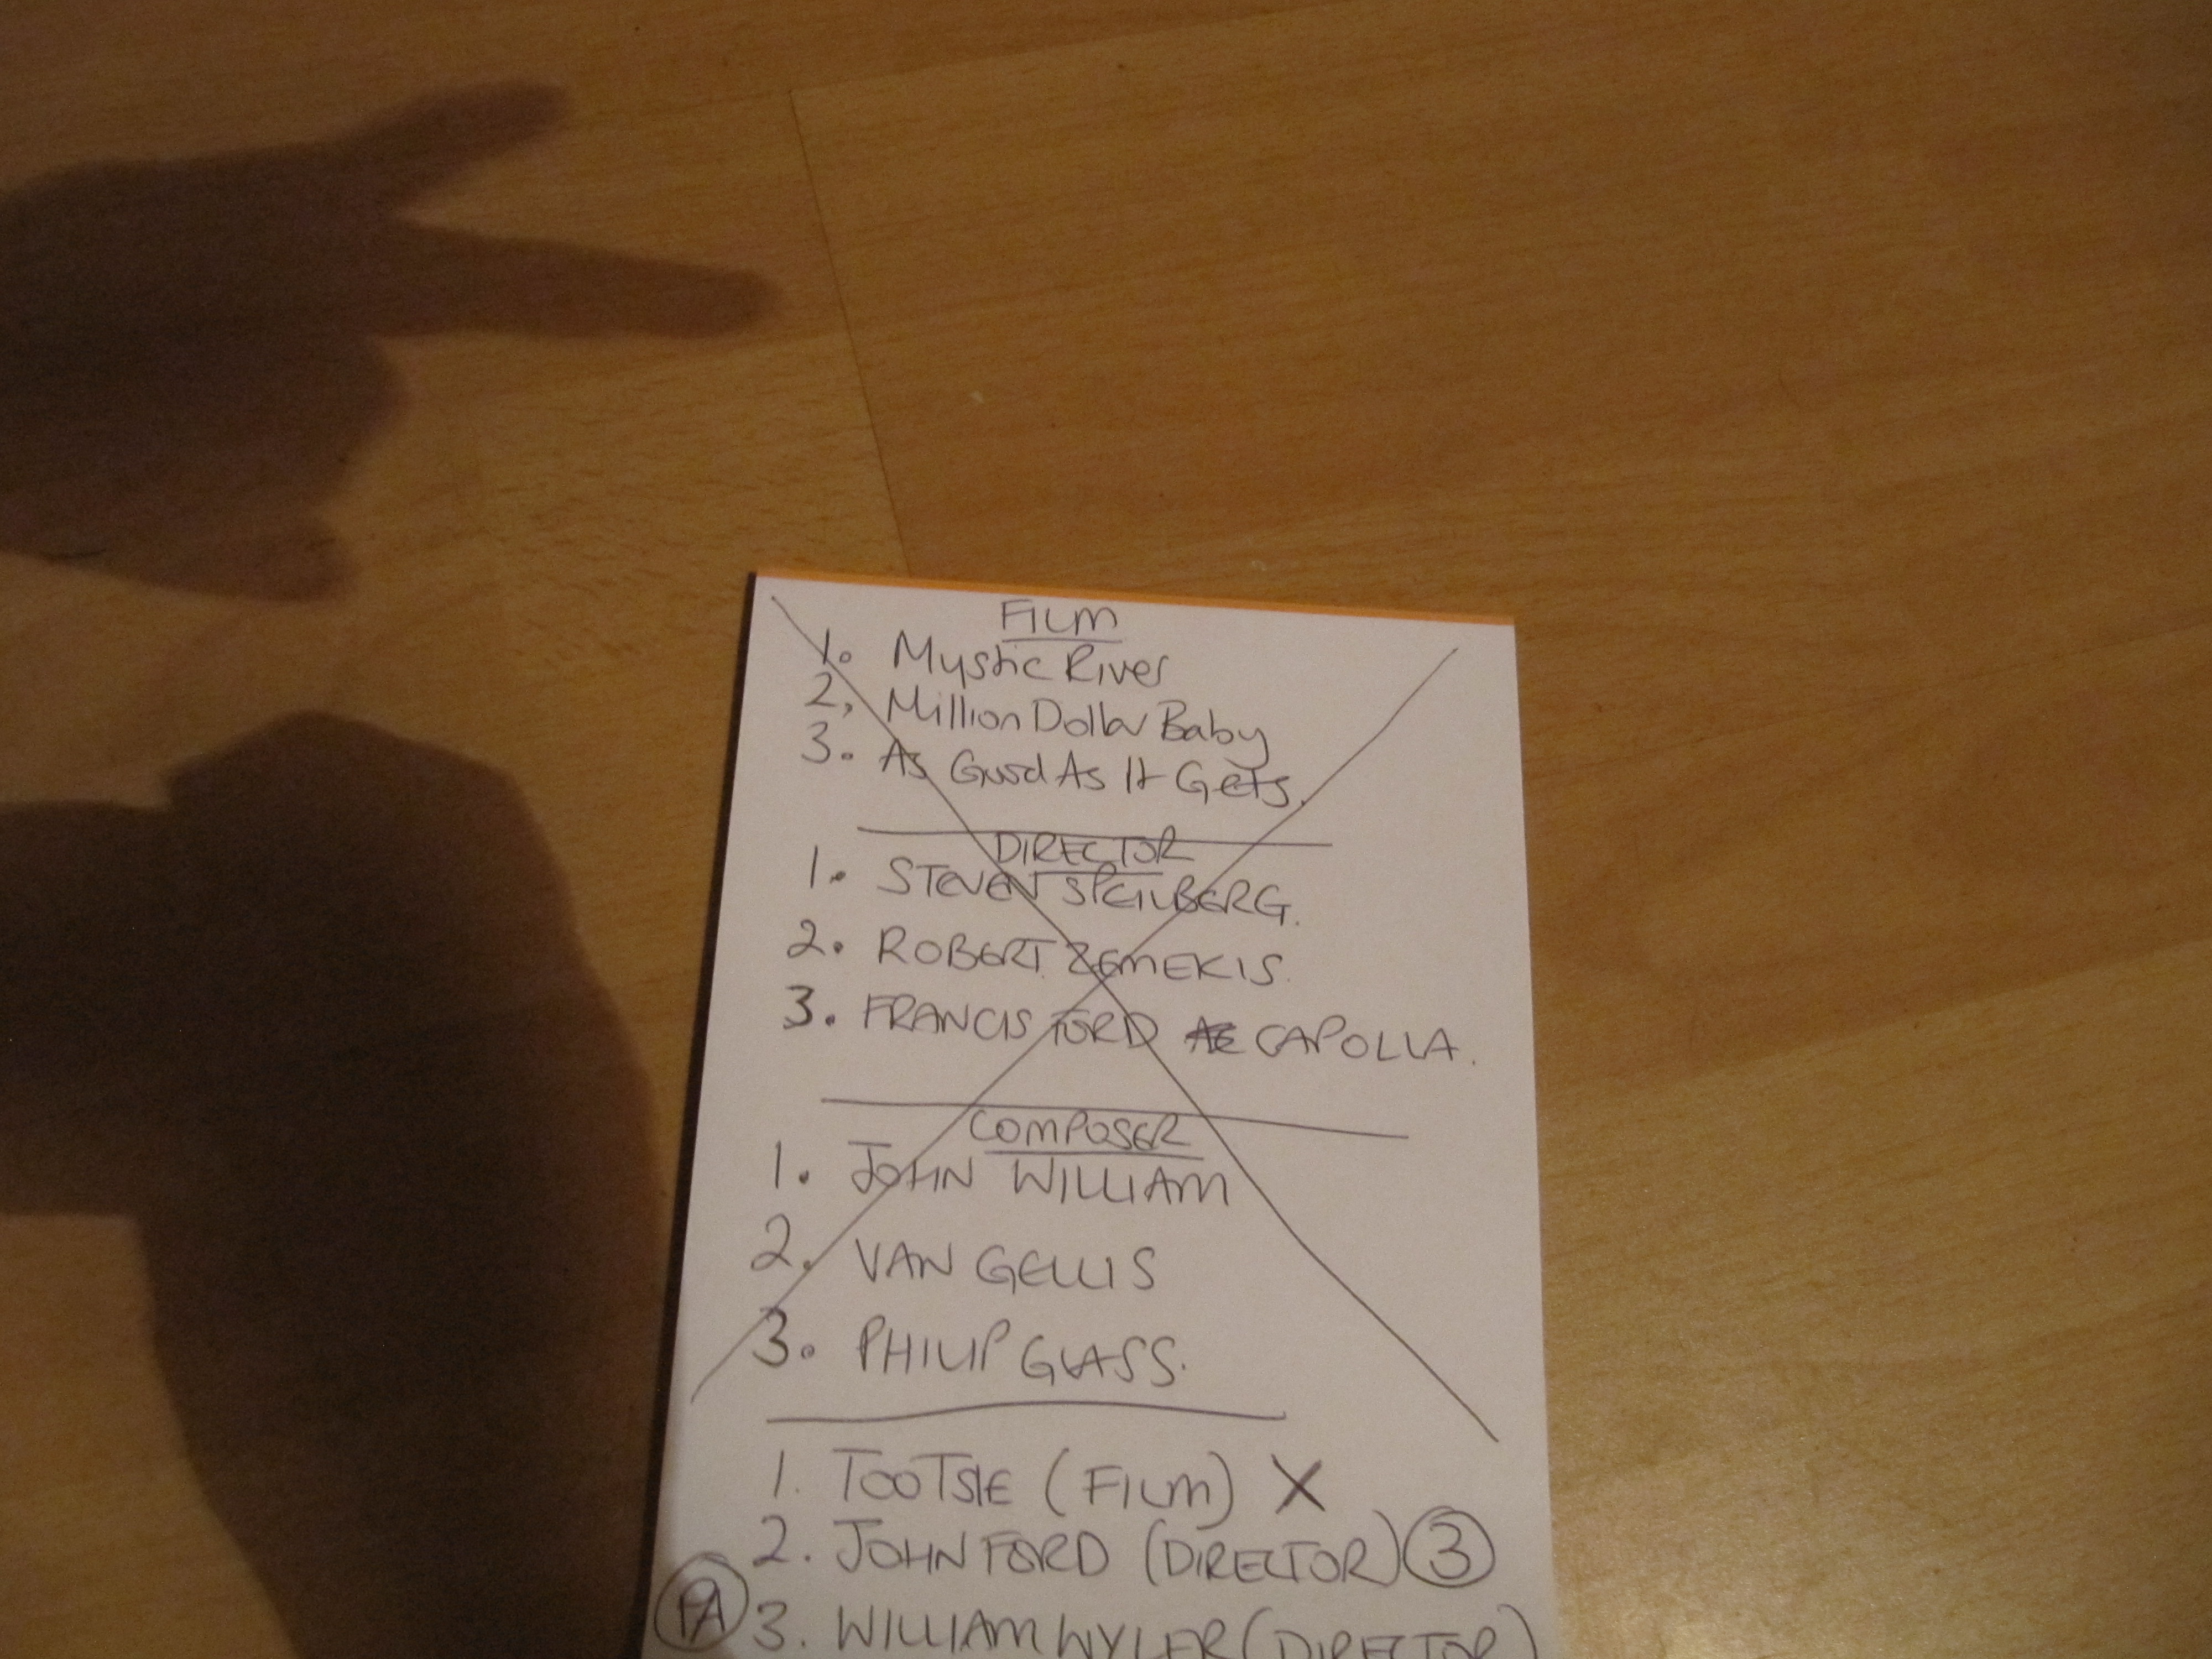 FILM
1. Mystic River
2, Million Dollar Baby
3. As Good As It Gets.
DIRECTOR
1. STEVEN SPEILBERG.
2. ROBERT ZEMEKIS.
3. FRANCIS FORD CAPOLLA.
COMPOSER
1. JOHN WILLIAM
2. VAN GELLIS
3. PHILIP GLASS.
1. TOOTSIE (FILM) X
2. JOHN FORD (DIRECTOR) 3
PA 3. WILLIAM WYLER (DIRECTOR)